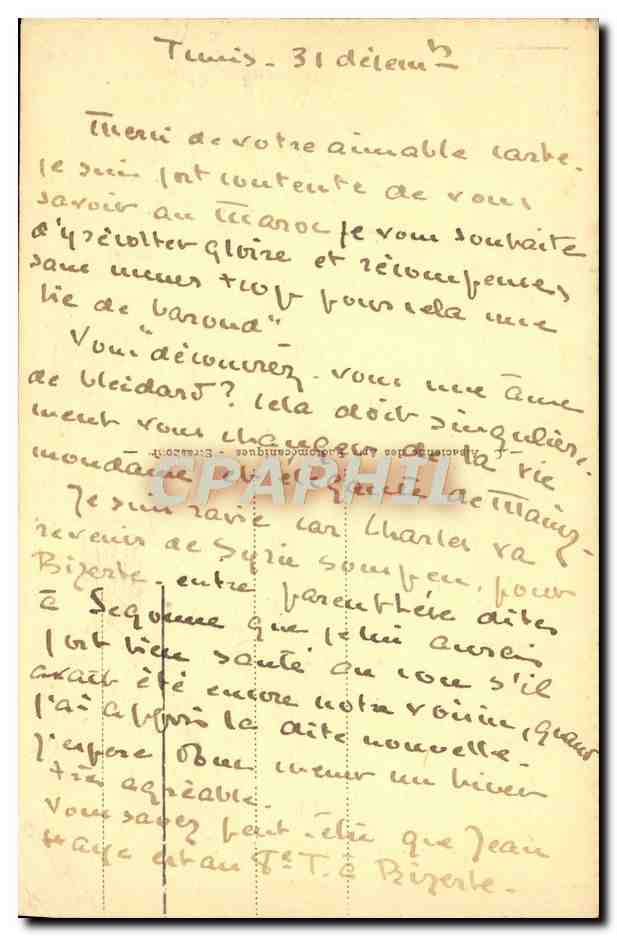 Tunis - 31 décemb
Merci de votre aimable carte.
je suis fort contente de vous
savoir au Maroc je vous souhaite
d'y récolter gloire et récompenses
sans mener trop pour cela une
vie de baroud"
Vous "découvrez-vous une âme
de bleidard? Cela doit singulière
ment vous changer de la vie
Alsacienne des Arts Photomécaniques - Strasbourg
CPAPHIL
mondaine et élégante de
Je suis ravie car Charles va
revenir de Syrie sous peu, pour
Bizerte - entre parenthèse dites
à que je lui aurais
fort bien sauté au cou s'il
avait été encore notre voisin, quand
j'ai appris la dite nouvelle -
J'espère mener un hiver
très agréable.
Vous savez peut-être que Jean
est au T. à Bizerte -